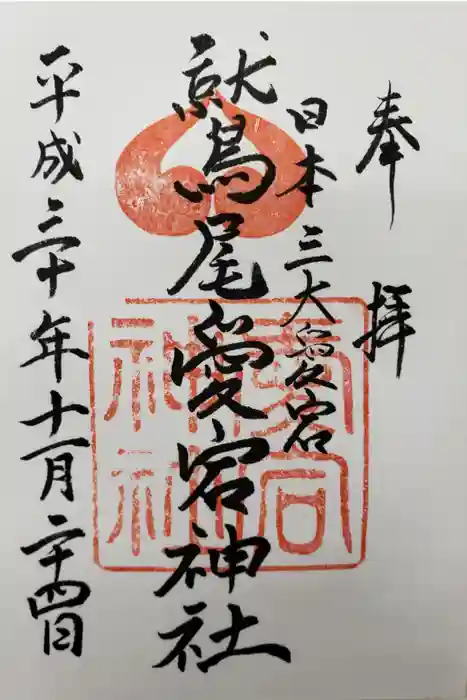 奉拝
日本三大愛宕
鷲尾愛宕神社
平成三十年十一月二十四日
愛宕神社